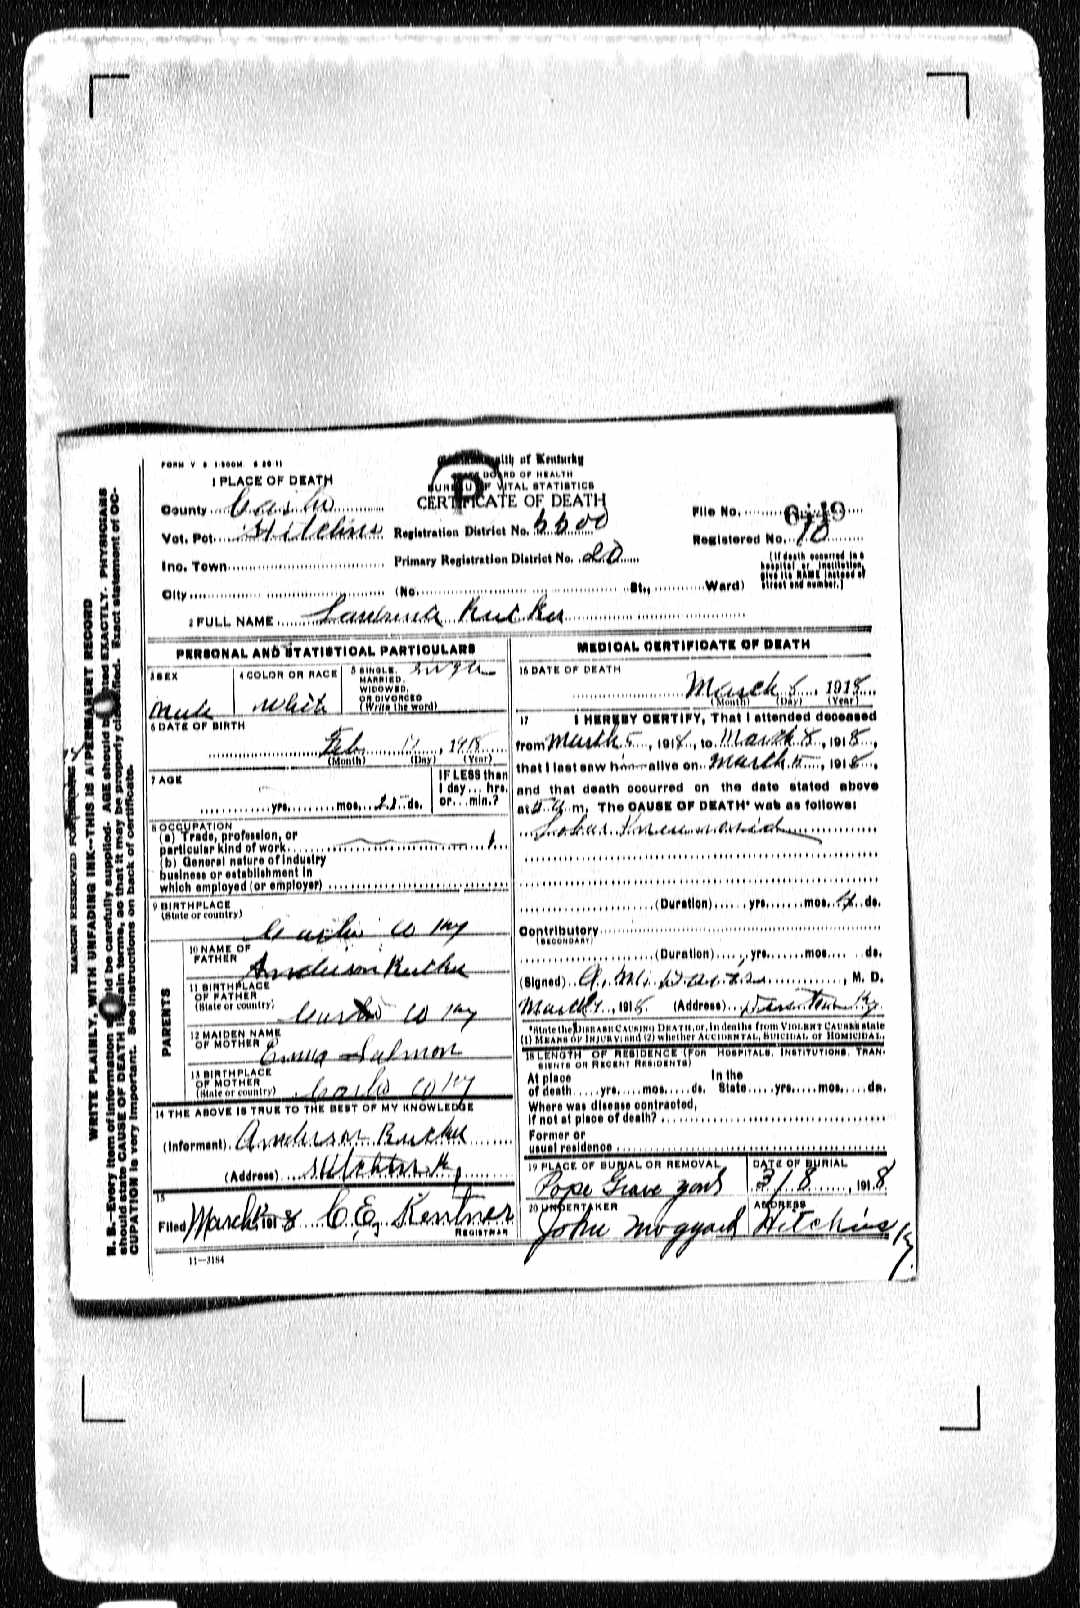 FORM V S 1-500M 6 20-11
Commonwealth of Kentucky
STATE BOARD OF HEALTH
BUREAU OF VITAL STATISTICS
CERTIFICATE OF DEATH
1 PLACE OF DEATH
County
Vot. Pct. Hitchins
Inc. Town
City
Registration District No.
Primary Registration District No. 20
(No. St., Ward)
File No.
Registered No. 10
(If death occurred in a
hospital or institution,
give its NAME instead of
street and number.)
2 FULL NAME Rucker
PERSONAL AND STATISTICAL PARTICULARS
3 SEX
Male
4 COLOR OR RACE
White
5 SINGLE, Single
MARRIED,
WIDOWED,
OR DIVORCED
(Write the word)
6 DATE OF BIRTH
Feb 1918
(Month) (Day) (Year)
7 AGE
yrs. mos. ds.
IF LESS than
1 day... hrs.
or... min.?
8 OCCUPATION
(a) Trade, profession, or
particular kind of work
(b) General nature of industry
business or establishment in
which employed (or employer)
9 BIRTHPLACE
(State or country)
Carter Co Ky
PARENTS
10 NAME OF
FATHER
Anderson Rucker
11 BIRTHPLACE
OF FATHER
(State or country)
Carter Co Ky
12 MAIDEN NAME
OF MOTHER
Emma Salmon
13 BIRTHPLACE
OF MOTHER
(State or country)
Carter Co Ky
14 THE ABOVE IS TRUE TO THE BEST OF MY KNOWLEDGE
(Informant) Anderson Rucker
(Address)
15
Filed March 1918 C. E. Kentner
REGISTRAR
11-3184
MEDICAL CERTIFICATE OF DEATH
16 DATE OF DEATH
March 1918
(Month) (Day) (Year)
17 I HEREBY CERTIFY, That I attended deceased
from March 5, 1918, to March 8, 1918,
that I last saw him alive on March, 1918,
and that death occurred on the date stated above
at m. The CAUSE OF DEATH* was as follows:
Lobar Pneumonia
(Duration) yrs. mos. 4 ds.
Contributory
(SECONDARY)
(Duration) yrs. mos. ds.
(Signed), M. D.
March, 1918 (Address) Ky.
*State the DISEASE CAUSING DEATH, or, in deaths from VIOLENT CAUSES state
(1) MEANS OF INJURY; and (2) whether ACCIDENTAL, SUICIDAL or HOMICIDAL.
18 LENGTH OF RESIDENCE (FOR HOSPITALS, INSTITUTIONS, TRAN-
SIENTS OR RECENT RESIDENTS)
At place In the
of death yrs. mos. ds. State yrs. mos. ds.
Where was disease contracted,
if not at place of death?
Former or
usual residence
19 PLACE OF BURIAL OR REMOVAL
Pope Grave yard
DATE OF BURIAL
3/8, 1918
20 UNDERTAKER
John
ADDRESS
Hitchins Ky.
MARGIN RESERVED FOR BINDING
WRITE PLAINLY, WITH UNFADING INK--THIS IS A PERMANENT RECORD
N. B.--Every item of information should be carefully supplied. AGE should be stated EXACTLY. PHYSICIANS
should state CAUSE OF DEATH in plain terms, so that it may be properly classified. Exact statement of OC-
CUPATION is very important. See instructions on back of certificate.